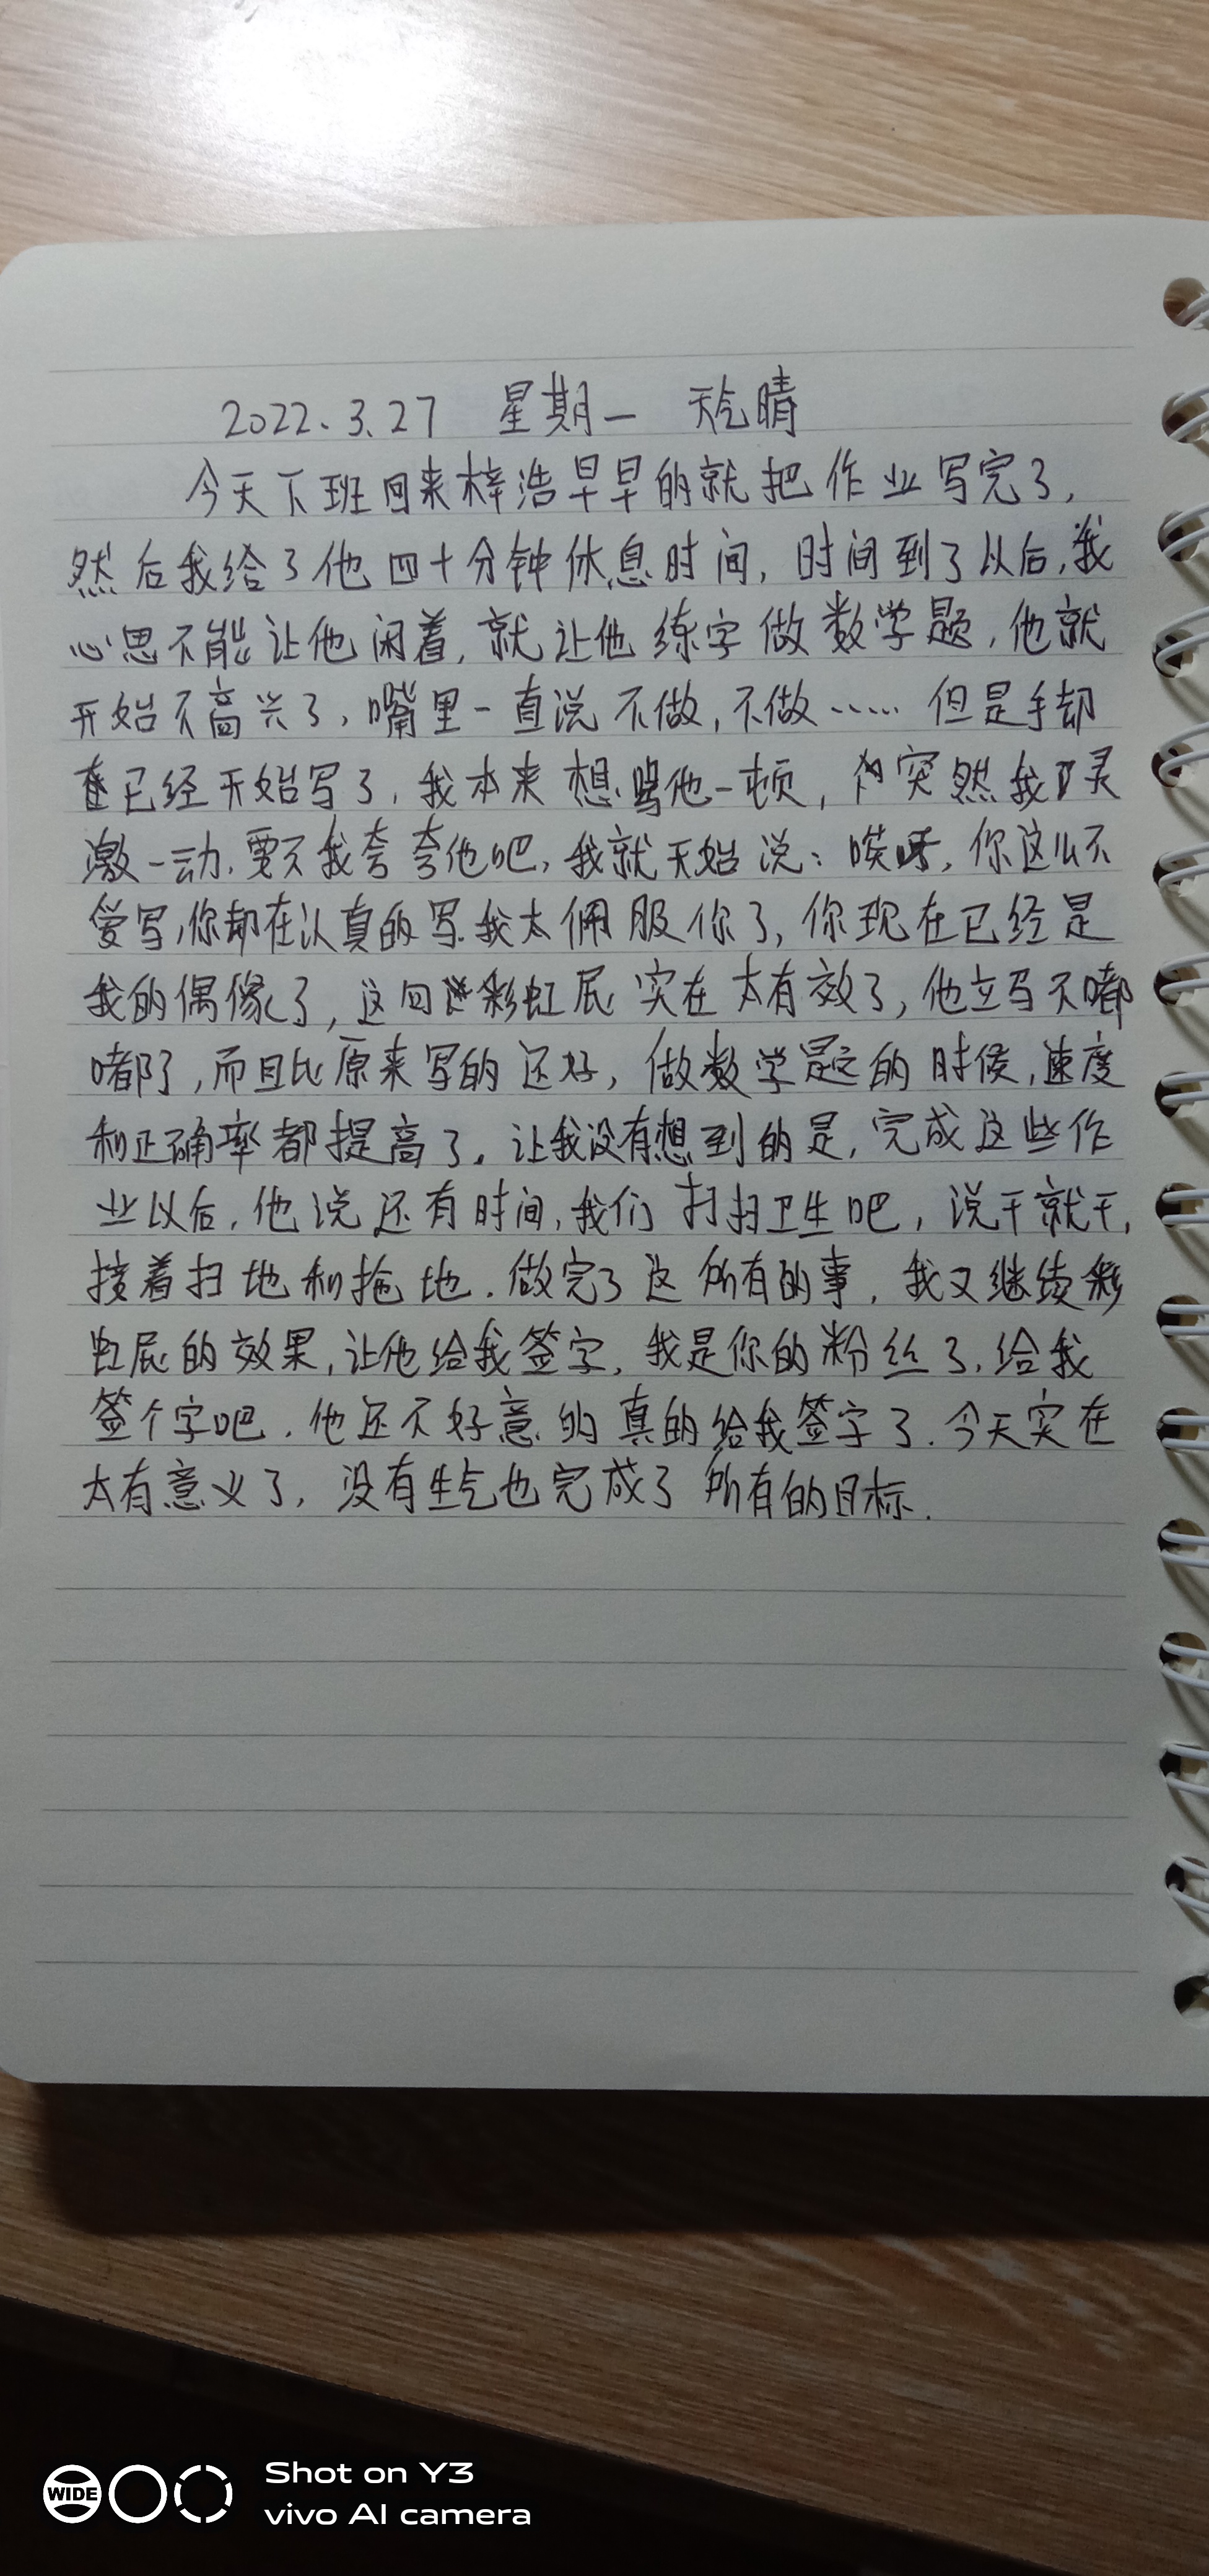 2022.3.27 星期一 天气晴
今天下班回来梓浩早早的就把作业写完了,
然后我给了他四十分钟休息时间,时间到了以后,我
心思不能让他闲着,就让他练字做数学题,他就
开始不高兴了,嘴里一直说不做,不做……但是手却
已经开始写了,我本来想骂他一顿,突然我灵
激一动,要不我夸夸他吧,我就开始说:哎呀,你这么不
爱写,你却在认真的写.我太佩服你了,你现在已经是
我的偶像了,这回彩虹屁实在太有效了,他立马不嘟
嘟了,而且比原来写的还好,做数学题的时候,速度
和正确率都提高了。让我没有想到的是,完成这些作
业以后,他说还有时间,我们扫扫卫生吧,说干就干,
接着扫地和拖地.做完了这所有的事,我又继续彩
虹屁的效果,让他给我签字,我是你的粉丝了,给我
签个字吧.他还不好意的真的给我签字了.今天实在
太有意义了,没有生气也完成了所有的目标.
WIDE
Shot on Y3
vivo AI camera